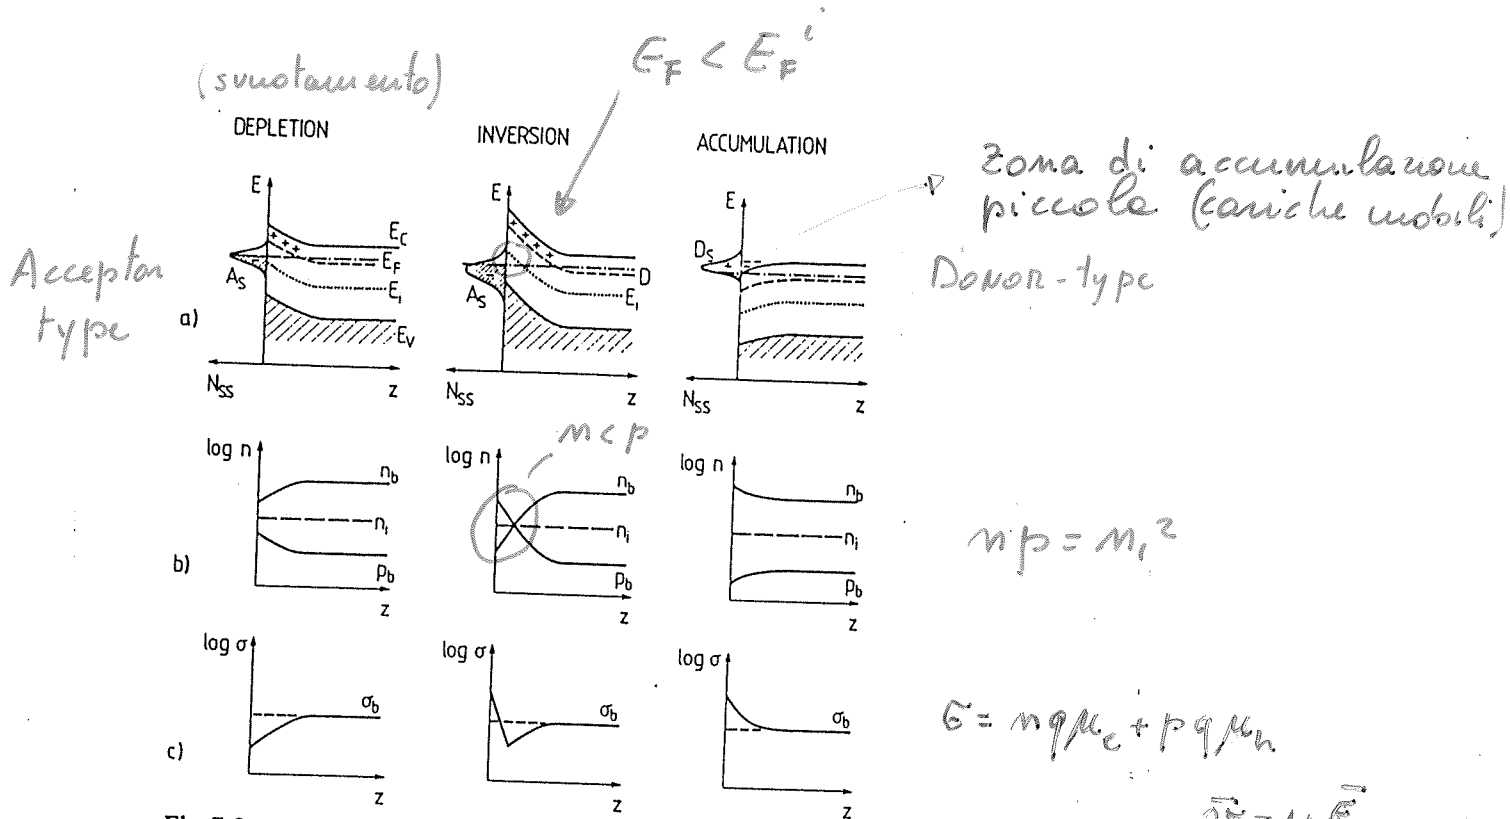 E_F < E_F^i
(svuotamento)
DEPLETION
INVERSION
ACCUMULATION
zona di accumulazione
piccola (cariche mobili)
Donor-type
Acceptor
type
a)
E
E_C
E_F
E_i
E_V
A_S
N_SS
z
E
D
E_i
A_S
N_SS
z
E
D_S
N_SS
z
n<p
b)
log n
n_b
n_i
p_b
z
log n
n_b
n_i
p_b
z
log n
n_b
n_i
p_b
z
np = n_i^2
c)
log σ
σ_b
z
log σ
σ_b
z
log σ
σ_b
z
σ = nqμ_e + pqμ_h